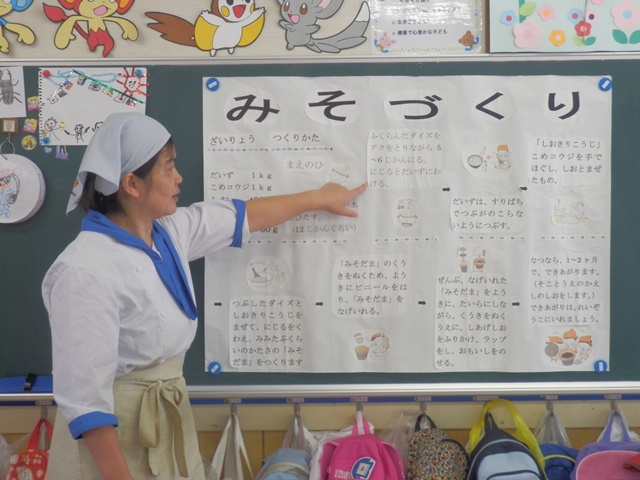 みそづくり
ざいりょう　つくりかた
だいず　１ｋｇ
こめコウジ１ｋｇ
まえのひ
ひたす。
（12じかんくらい）
ふくらんだダイズを
アクをとりながら、5
～6じかんにる。
にじるとだいずにわ
ける。
だいずは、すりばち
でつぶがのこらな
いようにつぶす。
「しおきりこうじ」
こめコウジを手で
ほぐし、しおとまぜ
たもの。
つぶしたダイズと
しおきりこうじを
まぜて、にじるをく
わえ、みみたぶくら
いのかたさの「みそ
だま」をつくります
「みそだま」のくう
きをぬくため、よう
きにビニールをは
り、「みそだま」を
なげいれる。
ぜんぶ、なげいれた
「みそだま」をよう
きに、たいらにしな
がら、くうきをぬく
うえに、しあげしお
をふりかけ、ラップ
をし、おもいしをの
せる。
なつなら、1～2ヶ月
で、できあがります。
（そこどうえのかえ
しのしおをします。）
できあがりは、れいぞ
うこにいれましょう。